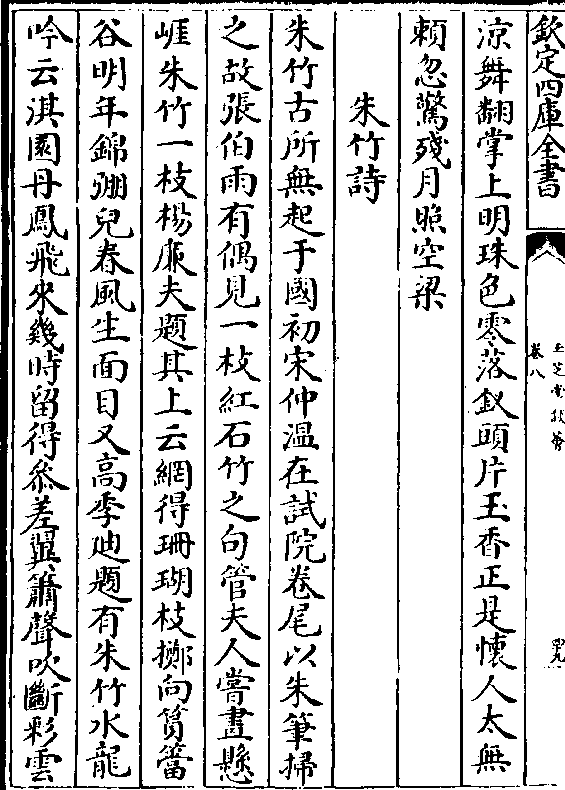 欽定四庫全書
玉芝堂談薈
卷八
四九
涼舞翻掌上明珠色零落釵頭片玉香正是懷人太無
頼忽驚殘月照空梁
朱竹詩
朱竹古所無起于國初宋仲温在試院卷尾以朱筆掃
之故張伯雨有偶見一枝紅石竹之句管夫人嘗畫懸
崕朱竹一枝楊亷夫題其上云網得珊瑚枝擲向篔簹
谷明年錦㡧兒春風生面目又高季廸題有朱竹水龍
吟云淇園丹鳳飛來幾時留得叅差翼簫聲吹斷彩雲